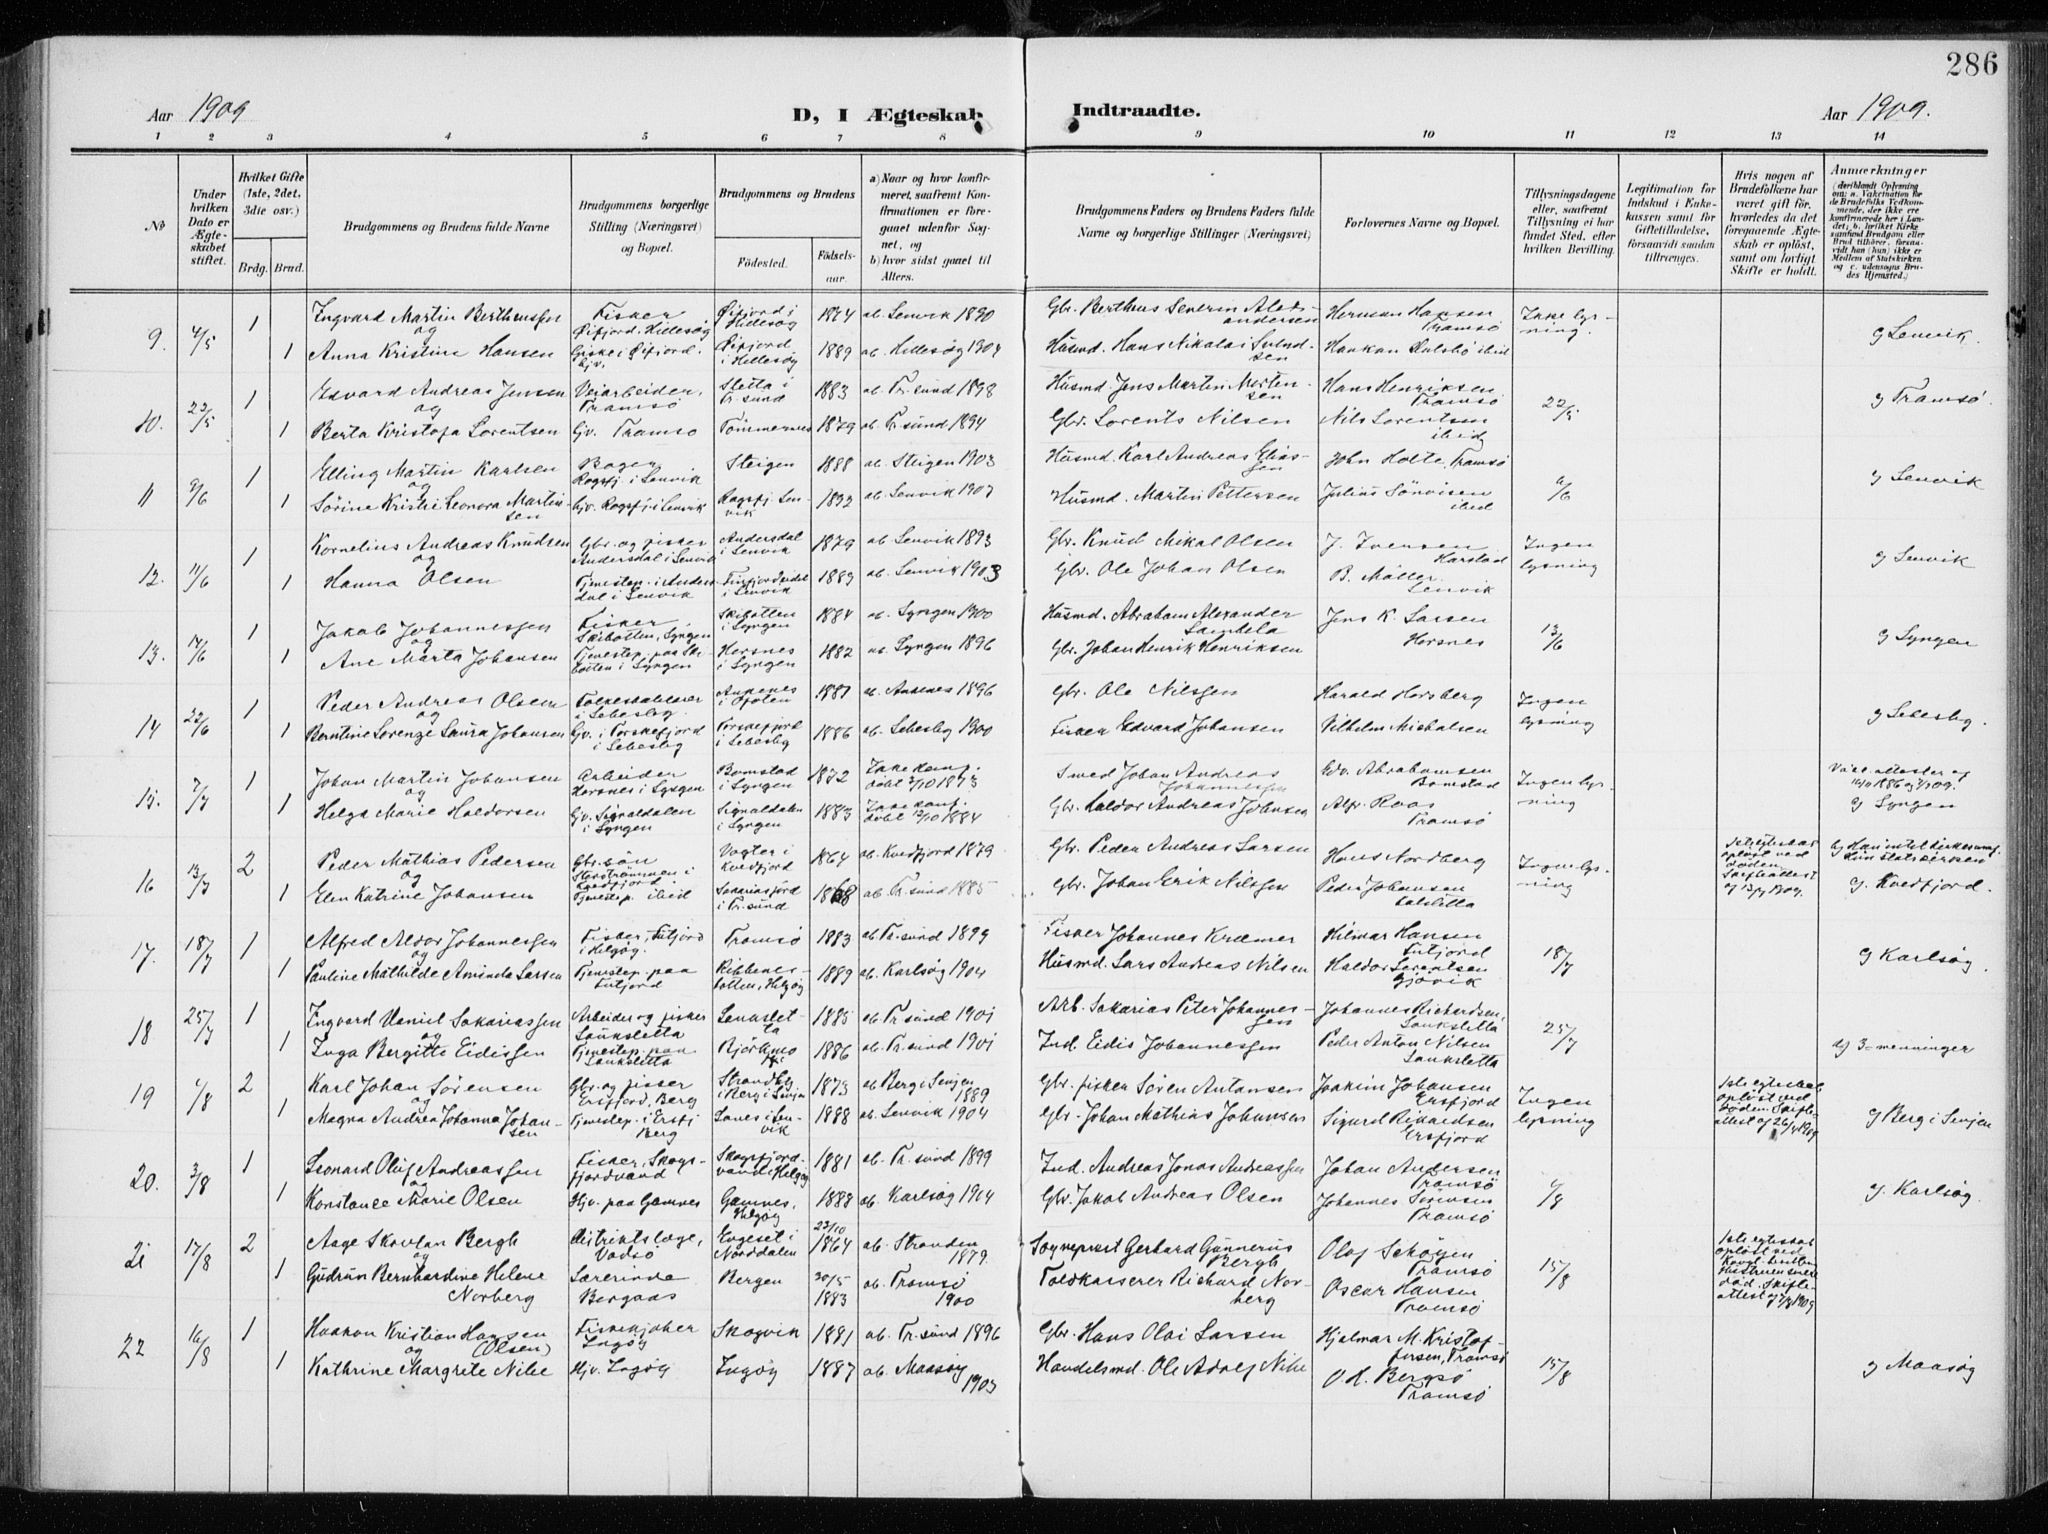 286
Aar 1909
D, I Ægteskab Indtraadte.
Aar 1909.
1 2 3 4 5 6 7 8 9 10 11 12 13 14
No
Under hvilken Dato er Ægteskabet stiftet.
Hvilket Gifte (1ste, 2det, 3die osv.)
Brdg. Brud.
Brudgommens og Brudens fulde Navne
Brudgommens borgerlige Stilling (Næringsvei) og Bopæl.
Brudgommens og Brudens
Fødested.
Fødselsaar.
a) Naar og hvor konfirmeret, saafremt Konfirmationen er foregaaet udenfor Sognet, og
b) hvor sidst gaaet til Alters.
Brudgommens Faders og Brudens Faders fulde Navne og borgerlige Stillinger (Næringsvei)
Forlovernes Navne og Bopæl.
Tillysningsdagene eller, saafremt Tillysning ei har fundet Sted, efter hvilken Bevilling.
Legitimation for Indskud i Enkekassen samt for Giftetilladelse, forsaavidt saadan tiltrænges.
Hvis nogen af Brudefolkene har været gift før, hvorledes da det foregaaende Ægteskab er opløst, samt om lovligt Skifte er holdt.
Anmerkninger
(deriblandt Oplysning om: a. Vakcination for de Brudefolks Vedkommende, der ikke ere konfirmerede her i Landet; b. hvilket Kirkesamfund Brudgom eller Brud tilhører, forsaavidt han (hun) ikke er Medlem af Statskirken og c. udensogns Brudes Hjemsted.)
9. 4/5 1 Ingvard Martin Berthussen Fisker Øifjord, Hillesøg Øifjord i Hillesøg 1874 ab. Lenvik 1890 Gbr. Berthus Severin Aleksandersen Herman Hansen Tromsø Ikke lysning.
og
1 Anna Kristine Hansen Øifjord. hjv. Øifjord i Hillesøg 1889 ab. Hillesøg 1904 Husmd. Hans Nikolai Haakon ibid c) Lenvik.
10. 22/5 1 Edvard Andreas Jensen Veiarbeider, Tromsø Sletta i Tr.sund 1883 ab Tr.sund 1898 Husmd. Jens Martin Mortensen Hans Henriksen Tromsø 22/5 c) Tromsø.
og
1 Berta Kristofa Lorentsen hjv. Tromsø Tømmernes 1879 ab Tr.sund 1894 Gbr. Lorents Nilsen Nils Lorentsen ibid
11 9/6 1 Elling Martin Karlsen Bager Rogsfj. i Lenvik Steigen 1888 ab. Steigen 1903 Husmd. Karl Andreas Eliassen John Holte, Tromsø 6/6 c) Lenvik
og
1 Sørine Kristine Leonora Martinsen hjv. Rogsfj. i Lenvik Rogsfj. Lenvik ab. Lenvik 1907 Husmd. Martin Pettersen Julius Sørvisen ibid
12. 11/6 1 Kornelius Andreas Knudsen Gbr. og fisker Andersdal i Lenvik Andersdal i Lenvik 1879 ab Lenvik 1893 Gbr. Knud Mikal Olsen J. Iversen Harstad Ingen lysning c) Lenvik
og
1 Hanna Olsen Tjenestep. i Andersdal i Lenvik i Lenvik 1883 ab. Lenvik 1903 Gbr. Ole Johan Olsen B. Møller. Lenvik
13. 17/6 1 Jakob Johannessen Fisker Skibotten, Lyngen Skibotten i Lyngen 1884 ab. Lyngen 1900 Husmd. Abraham Alexander Sambela Jens K. Larsen Horsnes 13/6 c) Lyngen
og
1 Ane Marta Johansen Tjenestep. paa Skibotten i Lyngen Horsnes i Lyngen 1882 ab. Lyngen 1896 Gbr. Johan Henrik Henriksen
14 22/6 1 Peder Andreas Olsen i Lebesby. Ankenes i Ofoten 1881 ab. Ankenes 1896 Gbr. Ole Nilsen Harald Horsberg Ingen lysning c) Lebesby.
og
1 Berntine Lorenze Laura Johansen hjv. i Torskefjord i Lebesby Torskefjord i Lebesby 1886 ab. Lebesby 1900 Fisker Edvard Johansen Vilhelm Mickalsen
15. 7/7 1 Johan Martin Johansen Arbeider Horsnes i Lyngen Bomstad i Lyngen 1872 Ikke konf. døbt 5/10 1873 Smed Johan Andreas Johannessen Edv. Abrahamsen Bomstad Ingen lysning Vakc. attester af 1886 og 1909.
og
1 Helga Marie Haldorsen hjv. Signaldalen i Lyngen Signaldalen i Lyngen 1883 Ikke konf. døbt 12/10 1884 Gbr. Haldor Andreas Johnsen Alfr. Roos Tromsø c) Lyngen
16 13/7 2 Peder Mathias Pedersen Gbr. søn Storstrømmen i Kvedfjord Vogter i Kvedfjord 1864 ab Kvedfjord 1879 Gbr. Peder Andreas Larsen Hans Nordberg Ingen lysning 1ste egteskab opløst ved døden. Skifteattest af 13/7 1909. b) Han
og
1 Elen Katrine Johansen Tjenestep. ibid i Tr.sund 1868 ab Tr.sund 1885 Gbr. Johan Erik Nilsen Peder Johansen c). Kvedfjord.
17. 18/7 1 Alfred Aldor Johannessen Fisker, Futfjord i Helgøy. Tromsø 1883 ab Tr.sund 1899 Fisker Johannes Kræmer Hilmar Hansen Futfjord 18/7 c) Karlsøy
og
1 Pauline Mathilde Aminda Larsen Tjenestep. paa Futfjord Ribbenesbotten, Helgøy 1889 ab. Karlsøy 1904 Husmd. Lars Andreas Nilsen Haldor Lorentsen Gjøvik
18 25/7 1 Ingvard Daniel Sakariassen Arbeider og fisker Lanksletta 1885 ab Tr.sund 1901 Arb. Sakarias Peter Johannessen Johannes Richardsen, Lanksletta 25/7
og
1 Inga Bergitte Eidissen Tjenestep. paa Lanksletta Bjørkmo 1886 ab Tr.sund 1901 Ind. Eidis Johannessen Peder Anton Nilsen Lanksletta 3-menninger
19 1/8 2 Karl Johan Sørensen Gbr. og fisker Ersfjord, Berg Strandby i Berg i Senjen 1873 ab Berg i Senjen 1889 Gbr. fisker Søren Antonsen Joakim Johansen Ersfjord Ingen lysning 1ste egteskab opløst ved døden. Skifteattest af 26/4 1909
og
1 Magna Andrea Johanna Johansen Tjenestep. i Ersfj. Berg Lanes i Lenvik 1888 ab. Lenvik 1904 Gbr. Johan Mathias Johansen Sigurd Rikardsen Ersfjord c) Berg i Senjen
20. 3/8 1 Leonard Oluf Andreassen Fisker, Skogsfjordvand Skogsfjordvand i Helgøy 1881 ab. Tr.sund 1899 Ind. Andreas Jonas Andreassen Johan Andersen Tromsø 1/8
og
1 Konstance Marie Olsen Hjv. paa Gamnes Gamnes, Helgøy 1888 ab Karlsøy 1904 Gbr. Jakob Andreas Olsen Johannes Sørensen Tromsø c). Karlsøy.
21 17/8 2 Aage Skavlan Bergh Distriktslæge, Vadsø Engeset i Norddalen 23/10 1864 ab. Stranden 1879. Sogneprest Gerhard Gunnerus Bergh Olaf Schøyen Tromsø 15/8 1ste egteskab opløst ved døden. Skifteattest 1909
og
1 Gudrun Bernhardine Helene Norberg Lærerinde Bergaas Bergen 30/5 1883 ab. Tromsø 1900 Toldkasserer Richard Norberg Oscar Hansen Tromsø
22 16/8 1 Haakon Kristian Hansen (Olsen) Fiskekjøber Ingøy Skogvik 1881 ab. Tr.sund 1896 Gbr. Hans Olai Larsen Hjalmar M. Kristoffersen, Tromsø 15/8
og
1 Kathrine Margrete Nibe Hjv. Ingøy Ingøy 1887 ab. Maasøy 1903 Handelsmd. Ole Adolf Nibe O. A. Bergsø Tromsø c) Maasøy